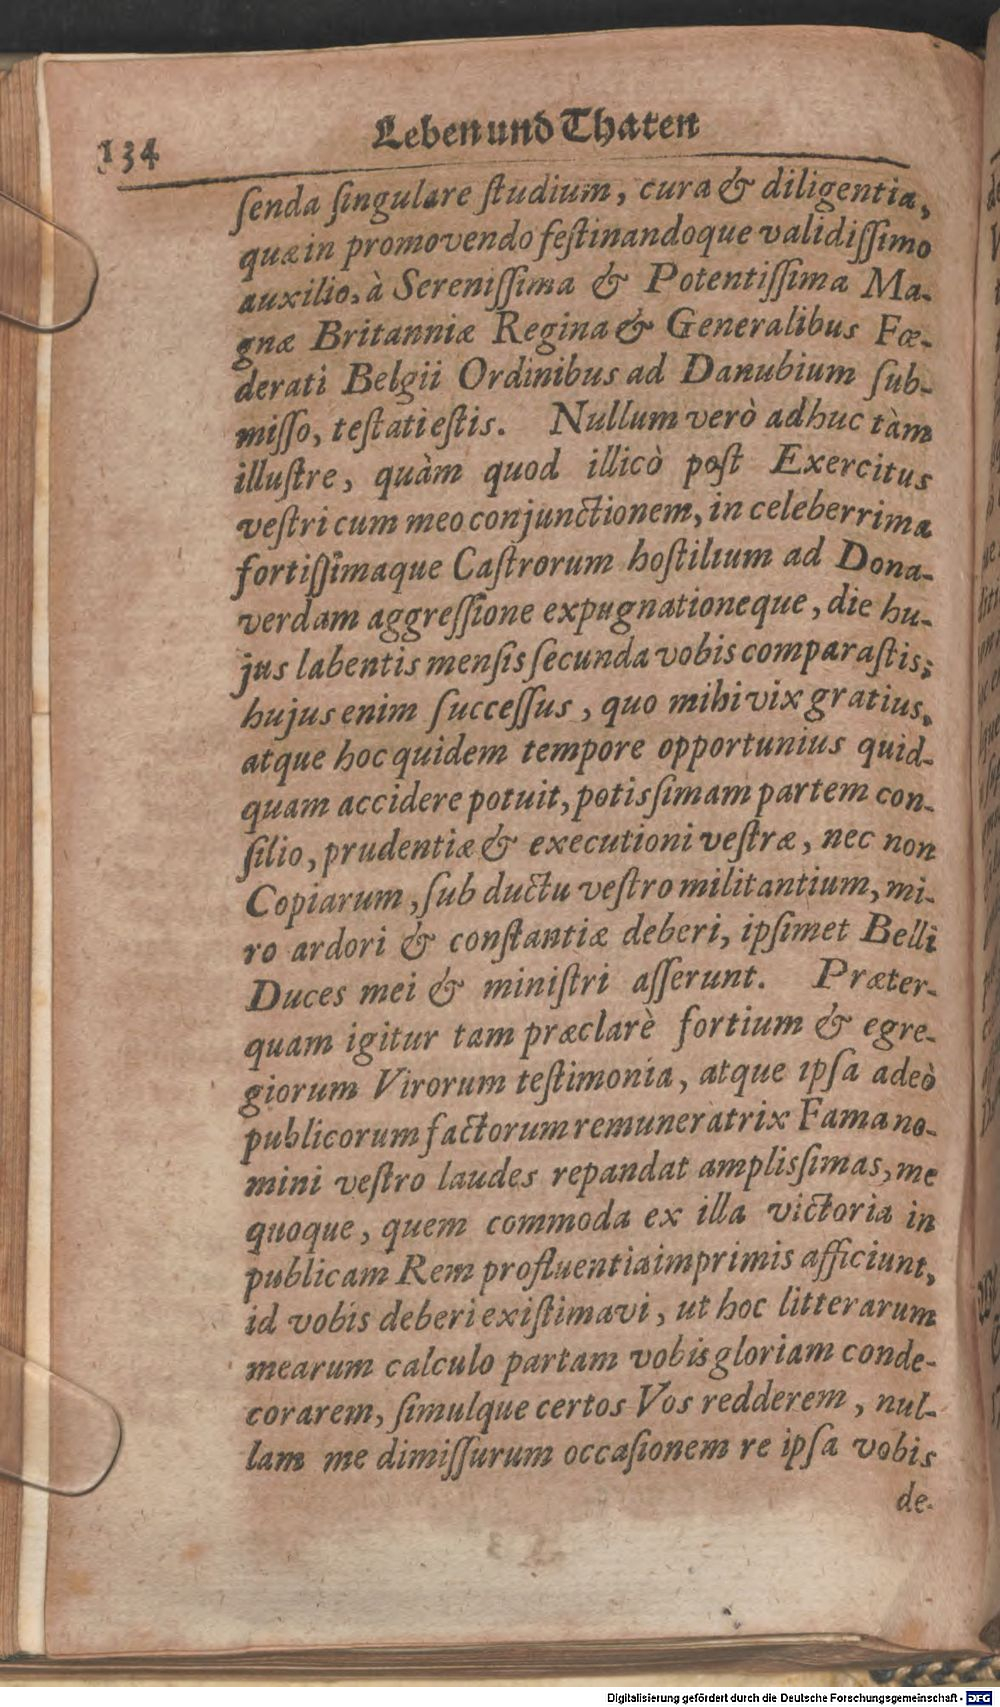 134 Leben und Thaten
ſenda ſingulare ſtudium, cura & diligentia,
quæ in promovendo feſtinandoque validiſſimo
auxilio, à Sereniſſima & Potentiſſima Ma-
gnæ Britanniæ Regina & Generalibus Fœ-
derati Belgii Ordinibus ad Danubium ſub-
miſſo, teſtati eſtis. Nullum verò adhuc tàm
illuſtre, quàm quod illicò poſt Exercitus
veſtri cum meo conjunctionem, in celeberrima
fortiſſimaque Caſtrorum hoſtilium ad Dona-
verdam aggreſſione expugnationeque, die hu-
jus labentis menſis ſecunda vobis comparaſtis;
hujus enim ſucceſſus, quo mihi vix gratius,
atque hoc quidem tempore opportunius quid-
quam accidere potuit, potisſimam partem con-
ſilio, prudentiæ & executioni veſtræ, nec non
Copiarum, ſub ductu veſtro militantium, mi-
ro ardori & conſtantiæ deberi, ipſimet Belli
Duces mei & miniſtri aſſerunt. Præter-
quam igitur tam præclarè fortium & egre-
giorum Virorum teſtimonia, atque ipſa adeò
publicorum factorum remuneratrix Fama no-
mini veſtro laudes repandat amplisſimas, me
quoque, quem commoda ex illa victoria in
publicam Rem profluentia imprimis afficiunt,
id vobis deberi exiſtimavi, ut hoc litterarum
mearum calculo partam vobis gloriam conde-
corarem, ſimulque certos Vos redderem, nul-
lam me dimiſſurum occaſionem re ipſa vobis
de-
Digitalisierung gefördert durch die Deutsche Forschungsgemeinschaft - DFG